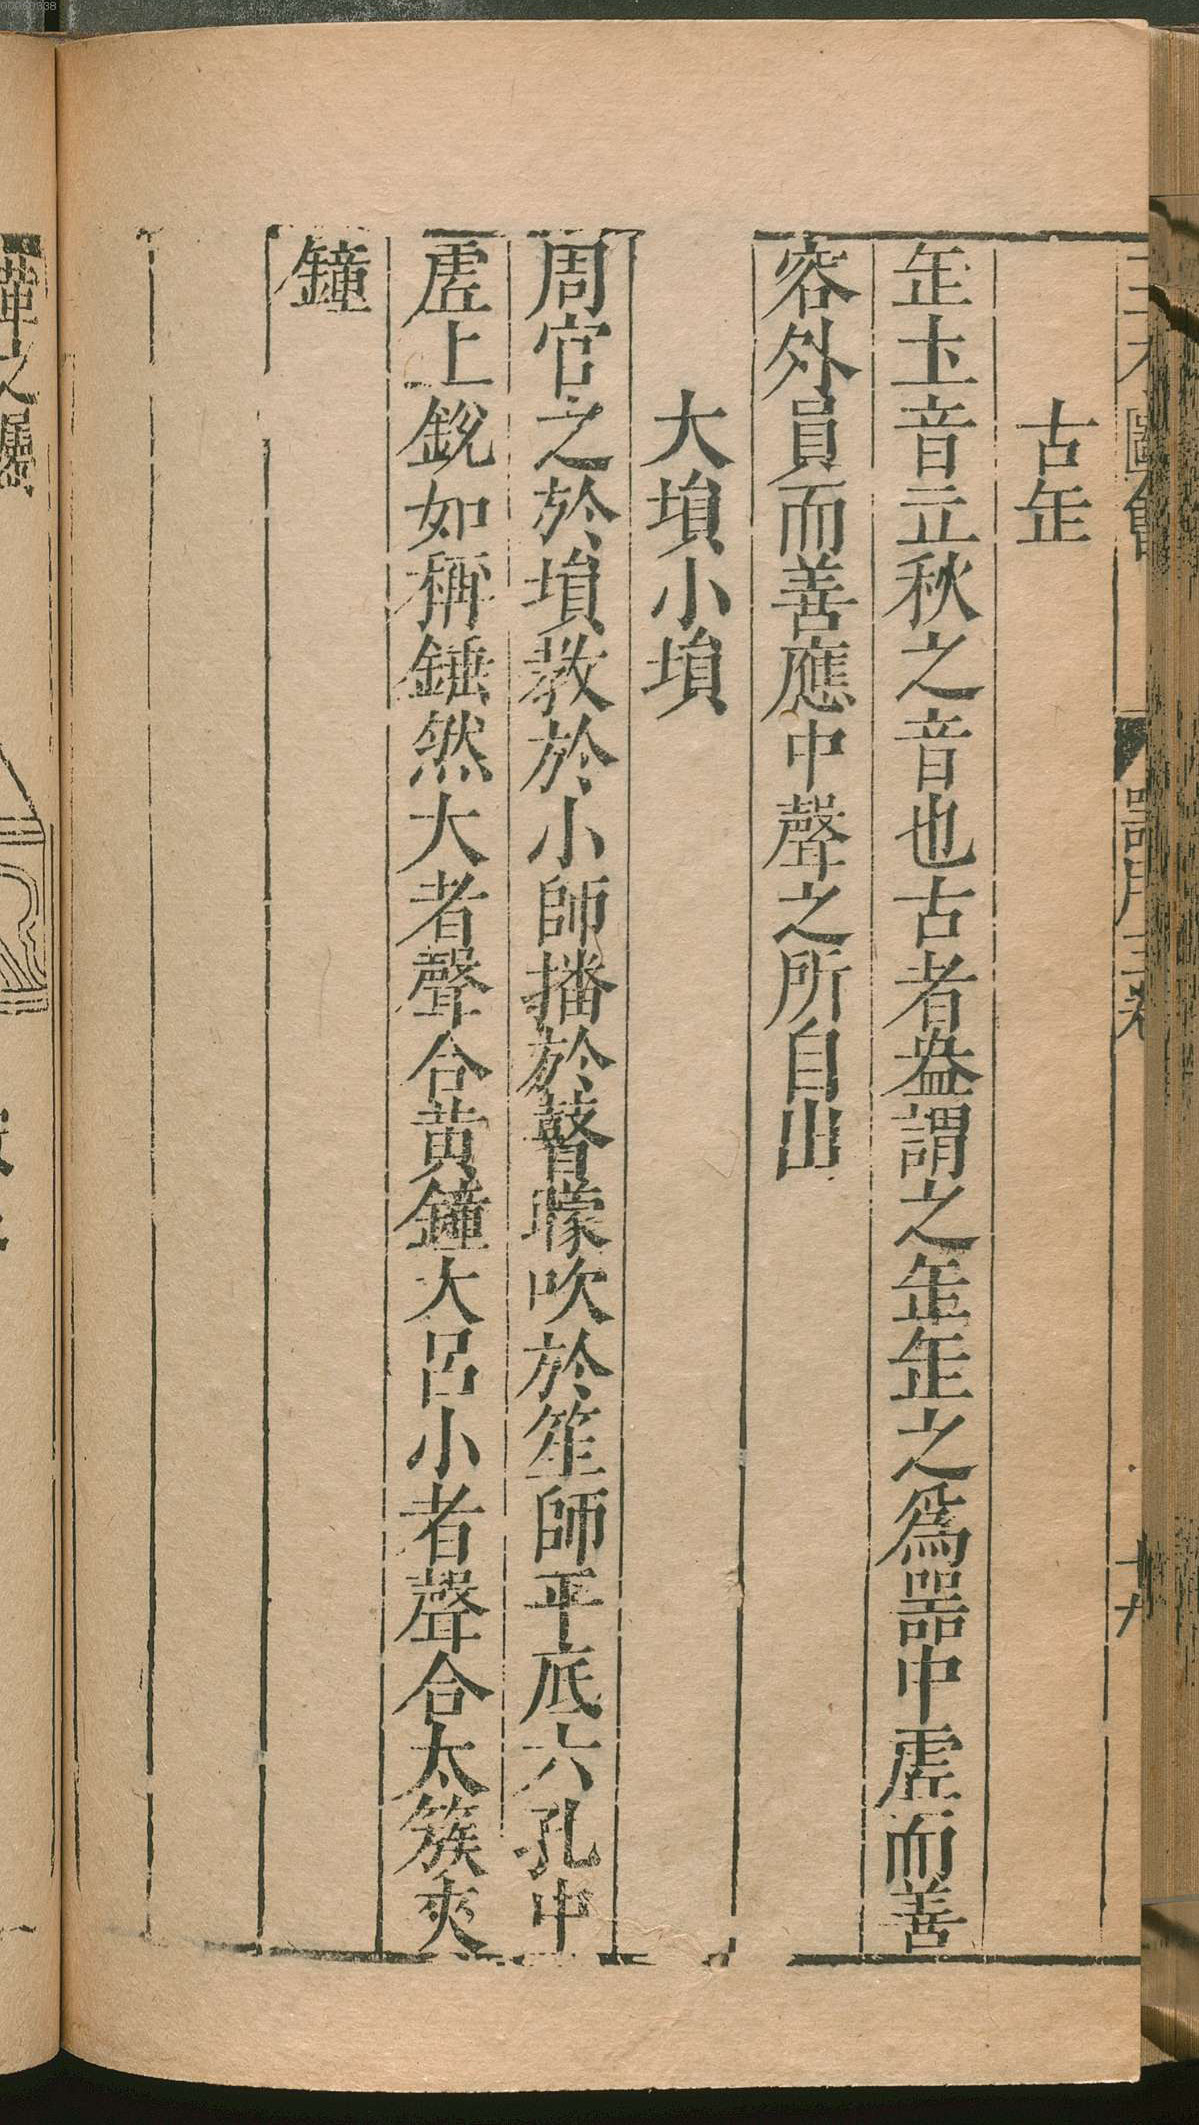 三才圖會　器用三卷　十九
古缶
缶圡音立秋之音也古者盎謂之缶缶之爲噐中虛而善
容外員而善應中聲之所自出
大塤小塤
周官之於塤教於小師播於瞽矇吹於笙師平底六孔中
虛上銳如稱錘然大者聲合黃鐘大呂小者聲合太簇夾
鐘
革之屬